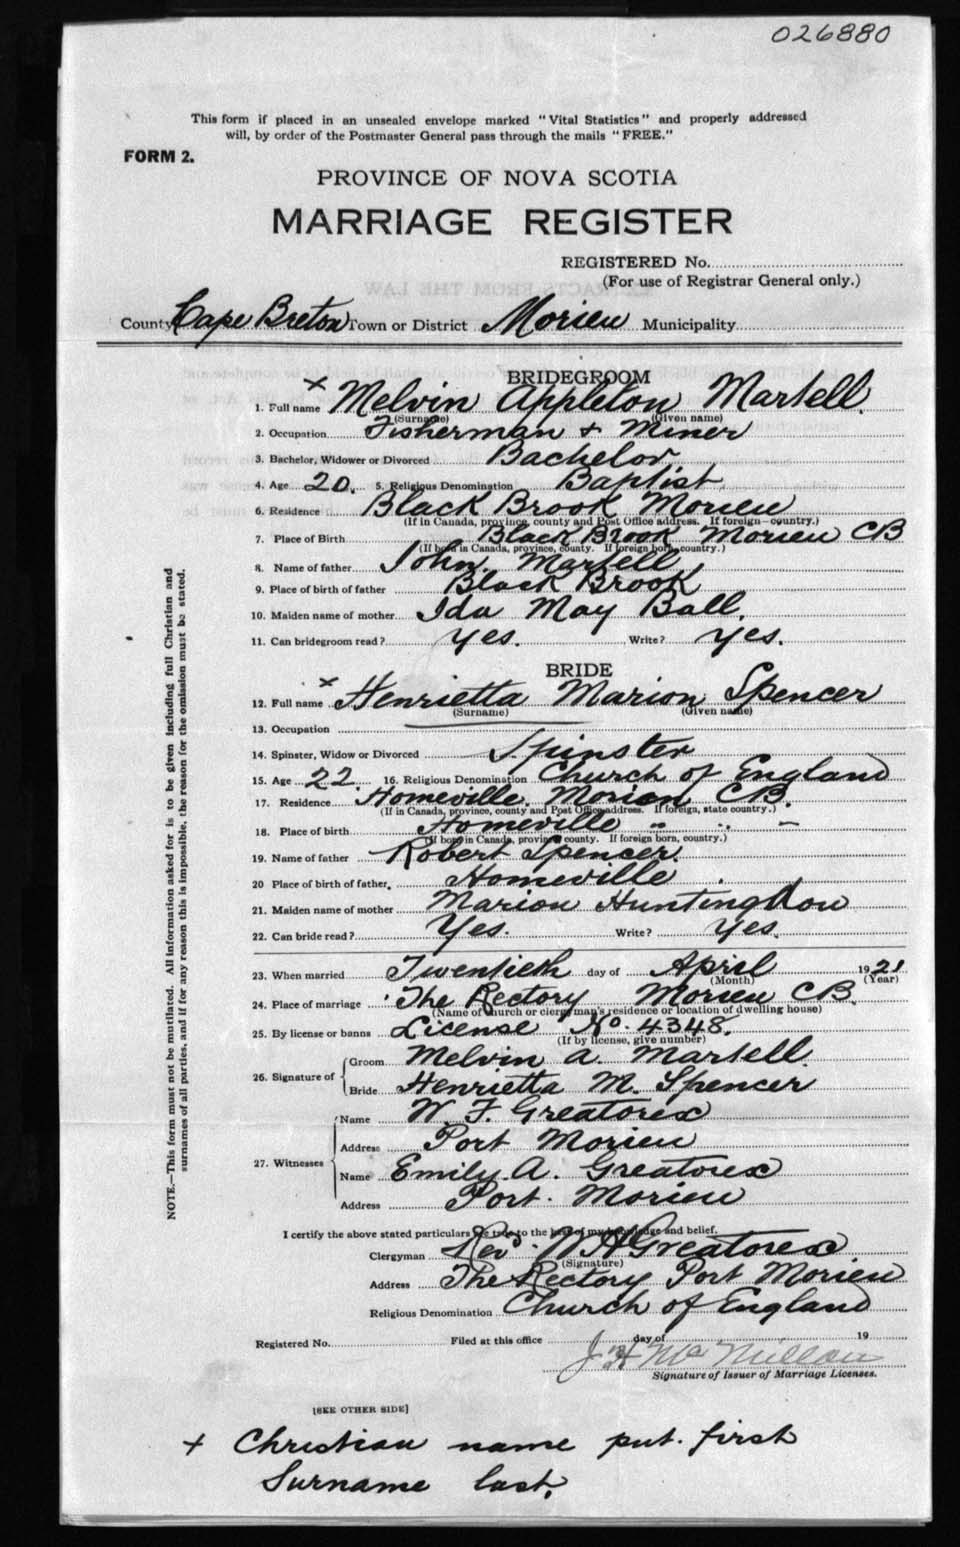 026880
This form if placed in an unsealed envelope marked "Vital Statistics" and properly addressed
will, by order of the Postmaster General pass through the mails "FREE."
FORM 2.
PROVINCE OF NOVA SCOTIA
MARRIAGE REGISTER
REGISTERED No.
(For use of Registrar General only.)
County Cape Breton Town or District Morien Municipality
BRIDEGROOM
1. Full name × Melvin Appleton Martell
(Surname) (Given name)
2. Occupation Fisherman + Miner
3. Bachelor, Widower or Divorced Bachelor
4. Age 20. 5. Religious Denomination Baptist
6. Residence Black Brook Morien
(If in Canada, province, county and Post Office address. If foreign—country.)
7. Place of Birth Black Brook Morien CB
(If born in Canada, province, county. If foreign born, country.)
8. Name of father John. Martell
9. Place of birth of father Black Brook
10. Maiden name of mother Ida May Ball.
11. Can bridegroom read? Yes. Write? Yes.
BRIDE
12. Full name × Henrietta Marion Spencer
(Surname) (Given name)
13. Occupation
14. Spinster, Widow or Divorced Spinster
15. Age 22. 16. Religious Denomination Church of England
17. Residence Homeville. Morien CB.
(If in Canada, province, county and Post Office address. If foreign, state country.)
18. Place of birth Homeville " " —
(If born in Canada, province, county. If foreign born, country.)
19. Name of father Robert Spencer.
20 Place of birth of father. Homeville
21. Maiden name of mother Marion Huntington
22. Can bride read? Yes. Write? Yes.
23. When married Twentieth day of April 1921
(Month) (Year)
24. Place of marriage The Rectory Morien CB.
(Name of church or clergyman's residence or location of dwelling house)
25. By license or banns License No. 4348.
(If by license, give number)
26. Signature of Groom Melvin A. Martell
Bride Henrietta M. Spencer
27. Witnesses Name W. F. Greatorex
Address Port Morien
Name Emily. A. Greatorex
Address Port. Morien
I certify the above stated particulars are true to the best of my knowledge and belief.
Clergyman Revd. W H Greatorex
(Signature)
Address The Rectory Port Morien
Religious Denomination Church of England
Registered No. Filed at this office day of 19
J H McMillan
Signature of Issuer of Marriage Licenses.
[SEE OTHER SIDE]
+ Christian name put. first
Surname last.
NOTE.—This form must not be mutilated. All information asked for is to be given including full Christian and
surnames of all parties, and if for any reason this is impossible, the reason for the omission must be stated.